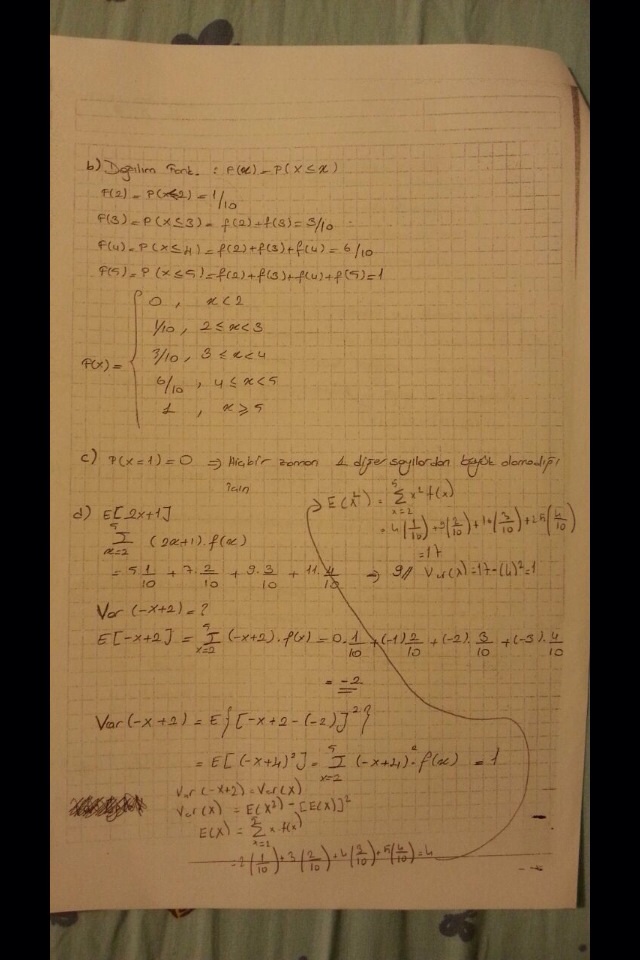 b) Dağılım Fonk. : F(x) = P(X ≤ x)
F(2) = P(X≤2) = 1/10
F(3) = P(X ≤ 3) = f(2)+f(3) = 3/10
F(4) = P(X ≤ 4) = f(2)+f(3)+f(4) = 6/10
F(5) = P(X ≤ 5) = f(2)+f(3)+f(4)+f(5) = 1
F(x) = {
0 , x < 2
1/10 , 2 ≤ x < 3
3/10 , 3 ≤ x < 4
6/10 , 4 ≤ x < 5
1 , x ≥ 5
c) P(X=1) = 0 ⇒ Hiçbir zaman 1 diğer sayılardan büyük olamadığı
için
d) E[2x+1]
5 Σ x=2 (2x+1).f(x)
= 5.1/10 + 7.2/10 + 9.3/10 + 11.4/10 ⇒ 9//
E(X²) = 5 Σ x=2 x² f(x)
= 4(1/10)+9(2/10)+16(3/10)+25(4/10)
= 17
Var(X) = 17-(4)² = 1
Var(-x+2) = ?
E[-x+2] = 5 Σ x=2 (-x+2).f(x) = 0.1/10 + (-1)2/10 + (-2).3/10 + (-3).4/10
= -2
Var(-x+2) = E{[-x+2-(-2)]²}
= E[(-x+4)²] = 5 Σ x=2 (-x+4)².f(x) = 1
Var(-x+2) = Var(X)
Var(X) = E(X²) - [E(X)]²
E(X) = 5 Σ x=2 x f(x)
= 2(1/10)+3(2/10)+4(3/10)+5(4/10) = 4